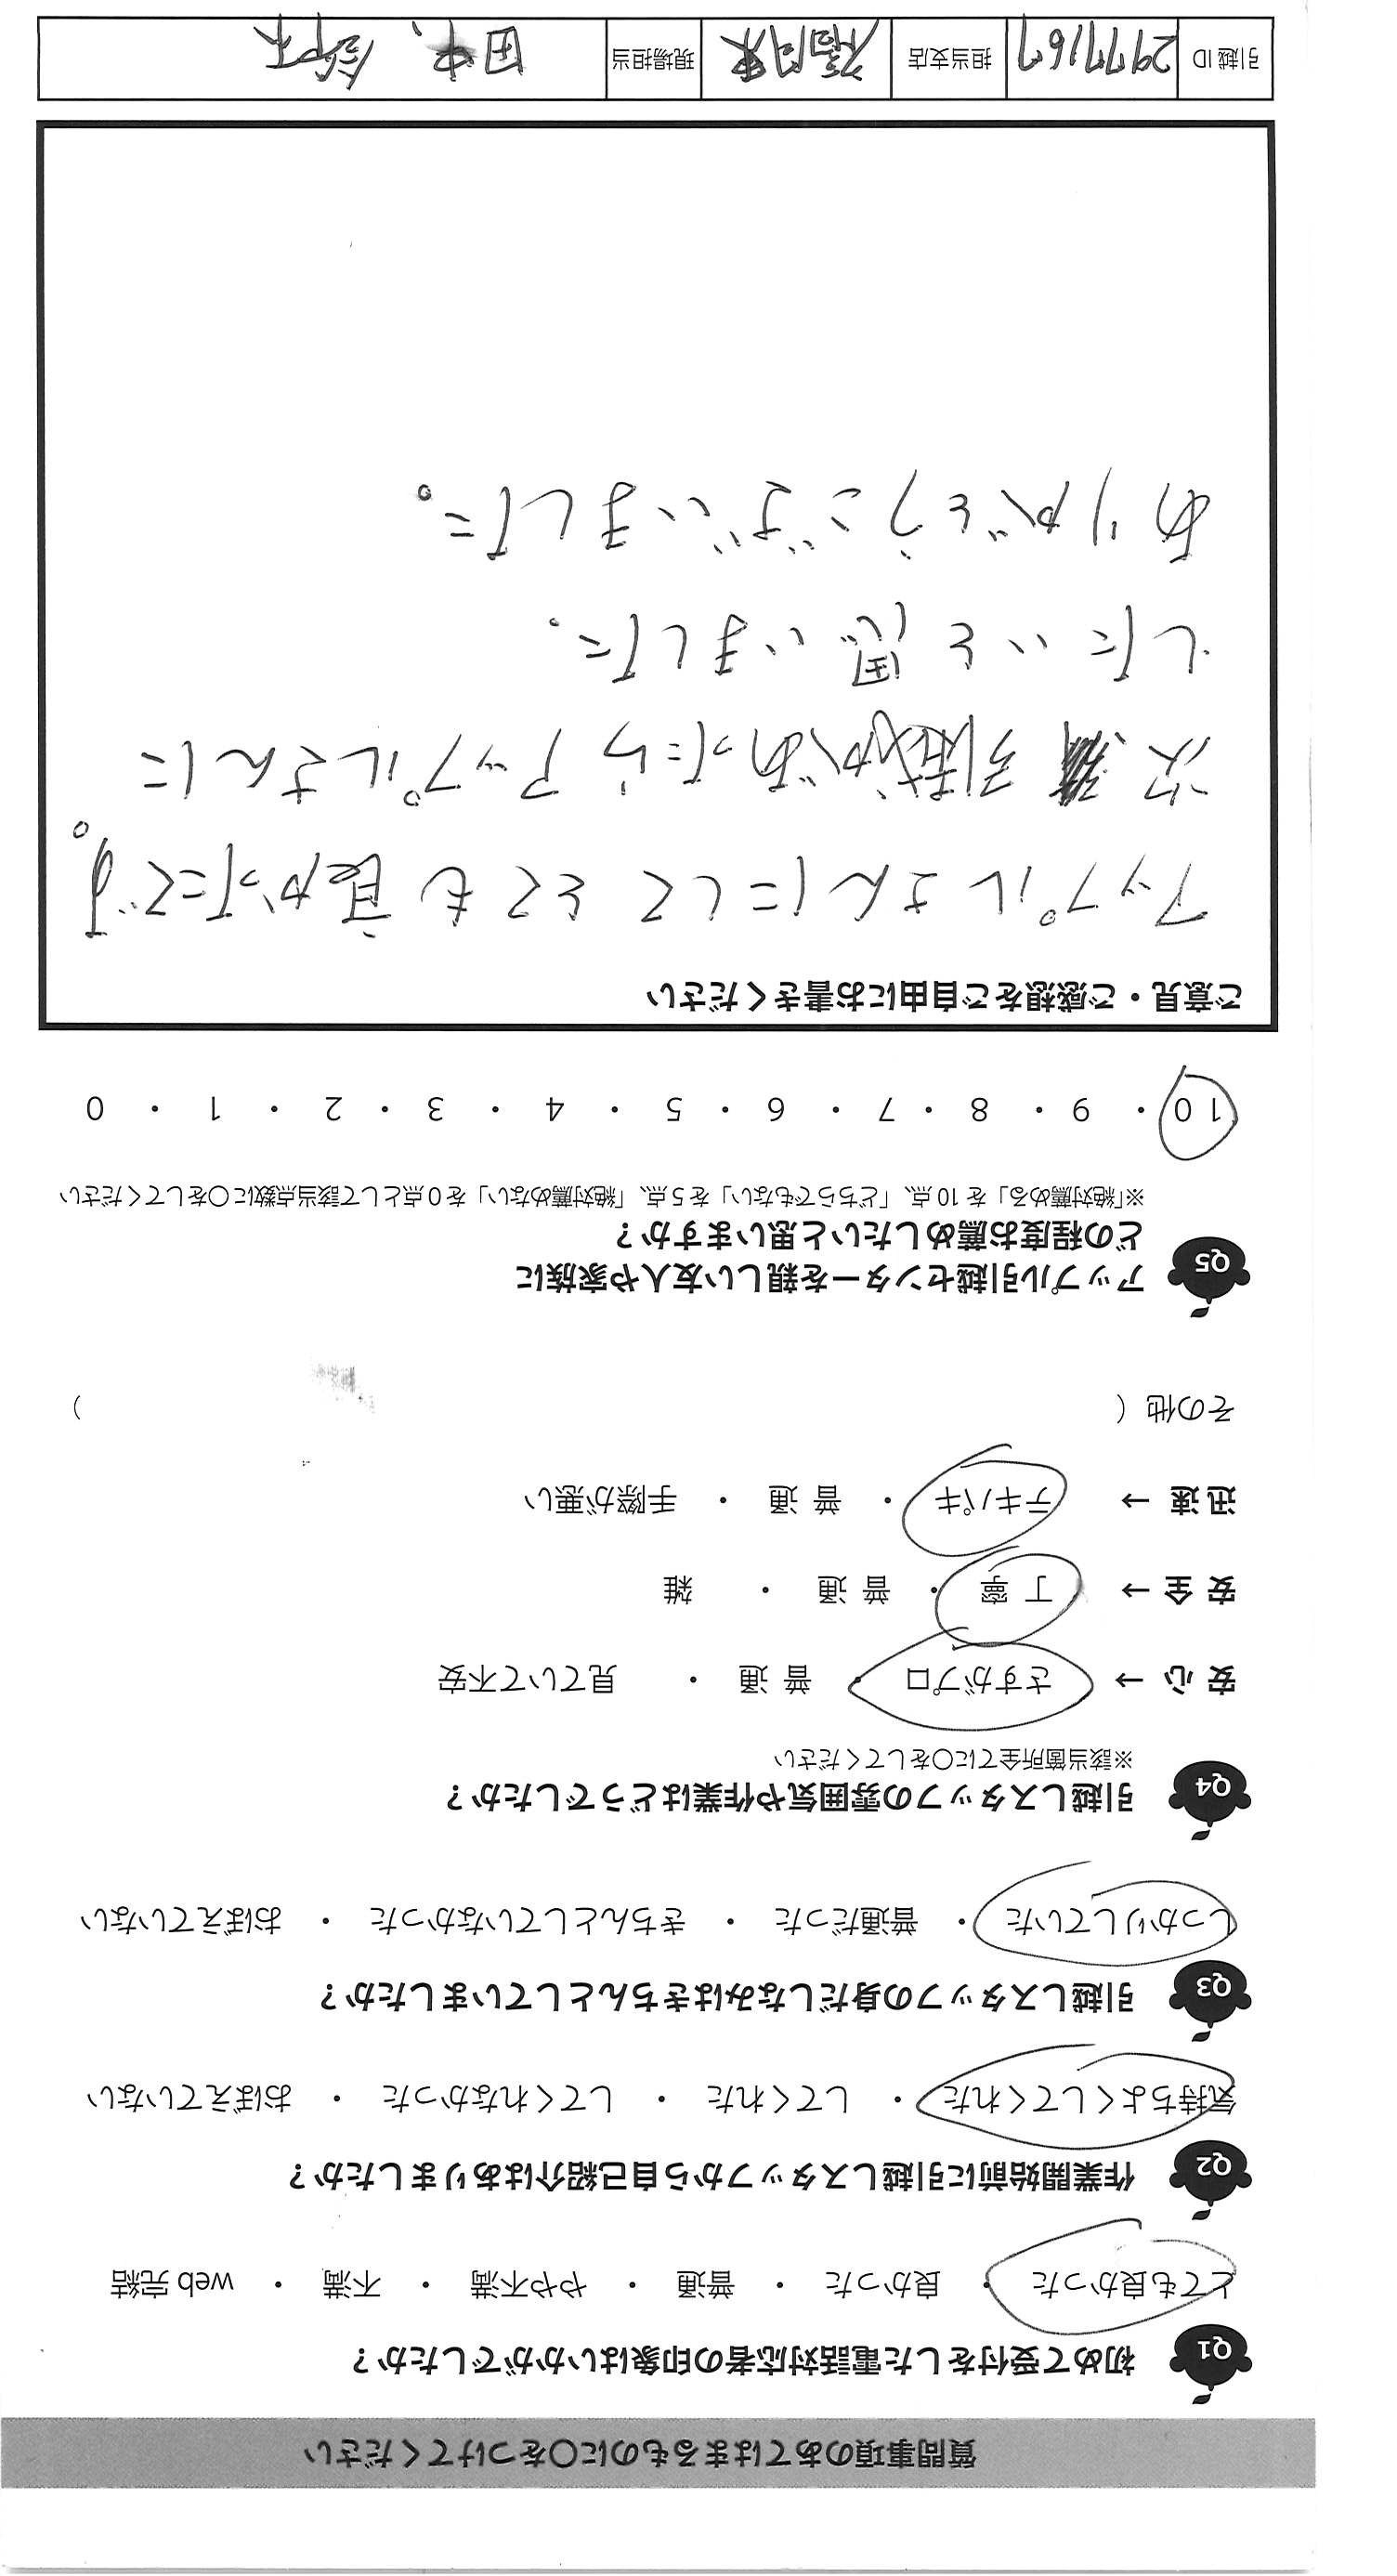 質問事項のあてはまるものに〇をつけてください
Q1 初めて受付をした電話対応者の印象はいかがでしたか?
とても良かった ・ 良かった ・ 普通 ・ やや不満 ・ 不満 ・ web完結
Q2 作業開始前に引越しスタッフから自己紹介はありましたか?
気持ちよくしてくれた ・ してくれた ・ してくれなかった ・ おぼえていない
Q3 引越しスタッフの身だしなみはきちんとしていましたか?
しっかりしていた ・ 普通だった ・ きちんとしていなかった ・ おぼえていない
Q4 引越しスタッフの雰囲気や作業はどうでしたか?
※該当箇所全てに〇をしてください
安心 → さすがプロ ・ 普通 ・ 見ていて不安
安全 → 丁寧 ・ 普通 ・ 雑
迅速 → テキパキ ・ 普通 ・ 手際が悪い
その他 ( )
Q5 アップル引越センターを親しい友人や家族に
どの程度お薦めしたいと思いますか?
※「絶対薦める」を10点、「どちらでもない」を5点、「絶対薦めない」を0点として該当点数に〇をしてください
10 ・ 9 ・ 8 ・ 7 ・ 6 ・ 5 ・ 4 ・ 3 ・ 2 ・ 1 ・ 0
ご意見・ご感想をご自由にお書きください
アップルさんにしてとても良かったです。
次、引越があったらアップルさんに
したいと思いました。
ありがとうございました。
引越ID 2977167 担当支店 福岡東 現場担当 田中、鈴木